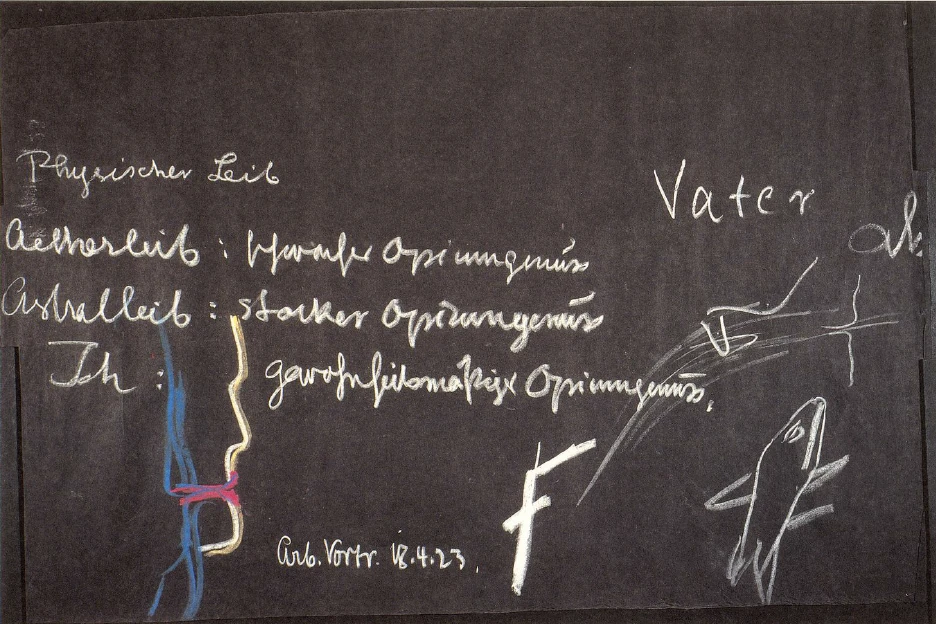 Physischer Leib
Aetherleib : schwacher Opiumgenuss
Astralleib : starker Opiumgenuss
Ich : gewohnheitsmäßiger Opiumgenuss.
Vater
ab
V
F
Arb. Vortr. 18.4.23.